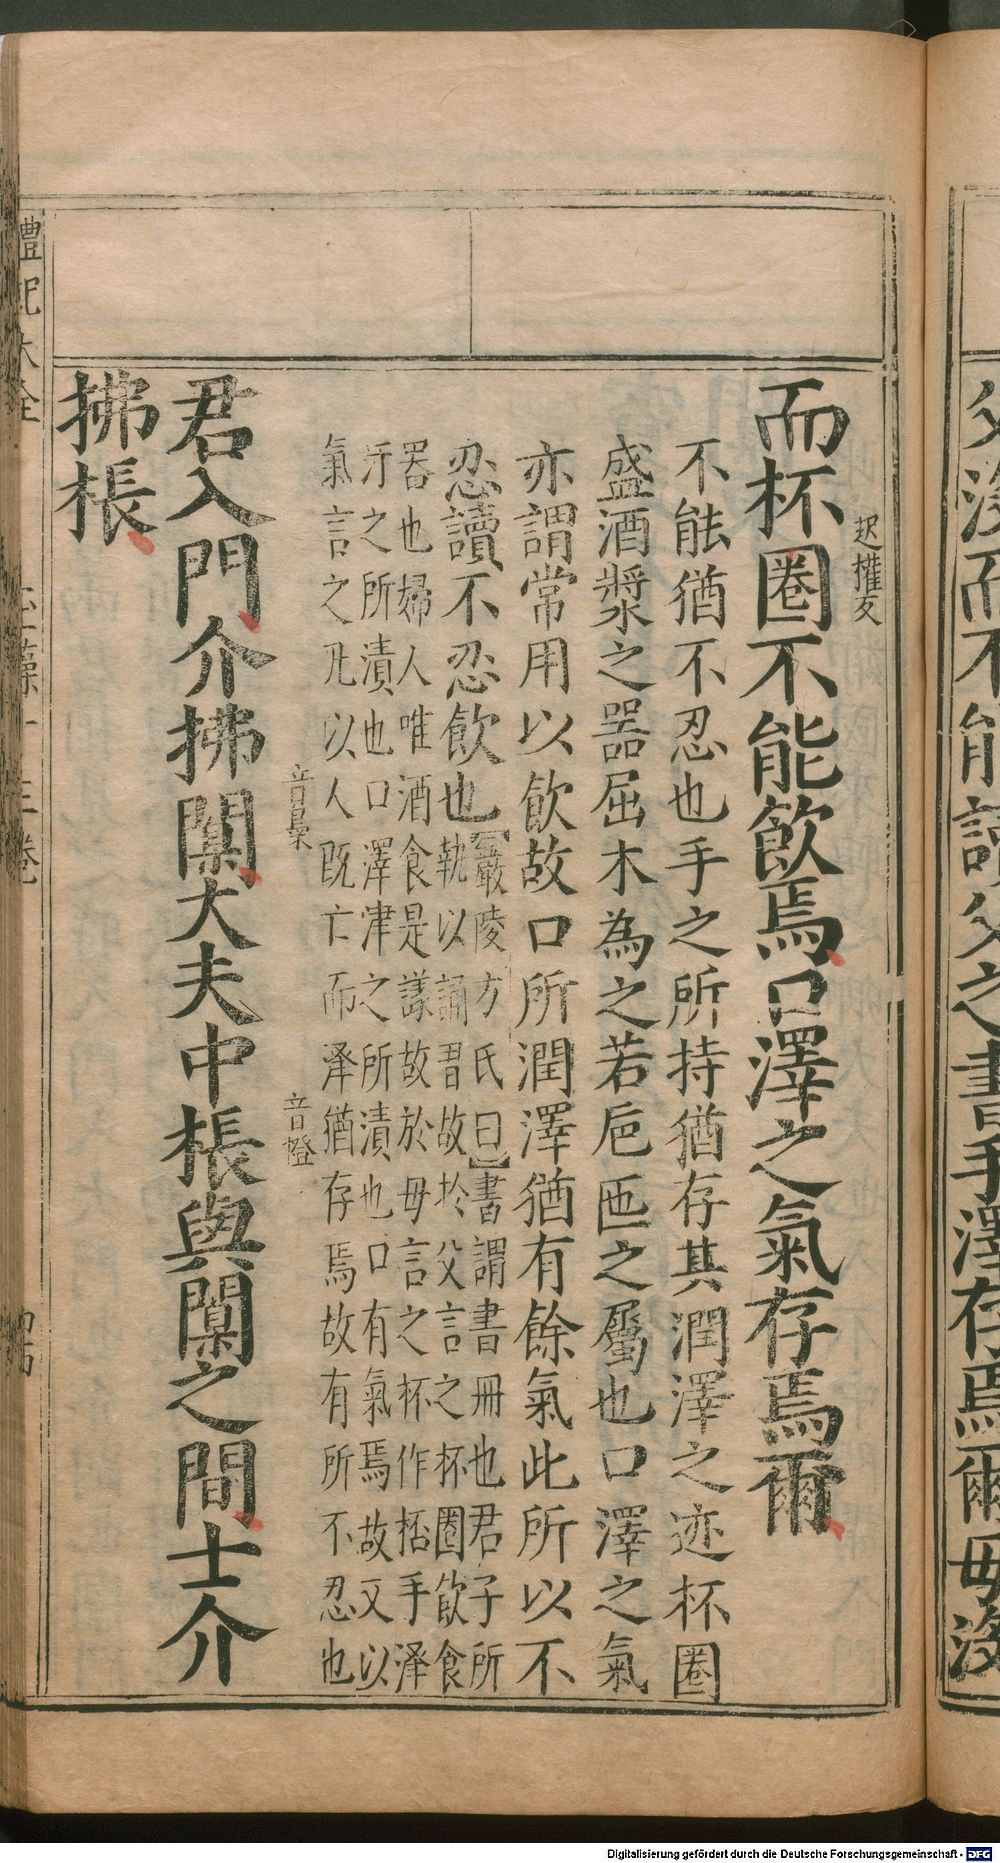 父沒而不能讀父之書手澤存焉爾母沒
而杯圈不能飲焉口澤之氣存焉爾
不能猶不忍也手之所持猶存其潤澤之迹杯圈
盛酒漿之器屈木為之若巵匜之屬也口澤之氣
亦謂常用以飲故口所潤澤猶有餘氣此所以不
忍讀不忍飲也
【嚴陵方氏曰】書謂書冊也君子所
執以誦習故於父言之杯圈飲食
器也婦人唯酒食是議故於母言之杯作桮手澤
汗之所漬也口澤津之所漬也口有氣焉故又以
氣言之凡以人既亡而澤猶存焉故有所不忍也
音臬
音橙
君入門介拂闑大夫中棖與闑之間士介
拂棖
禮記大全
玉藻十三卷
Digitalisierung gefördert durch die Deutsche Forschungsgemeinschaft - DFG